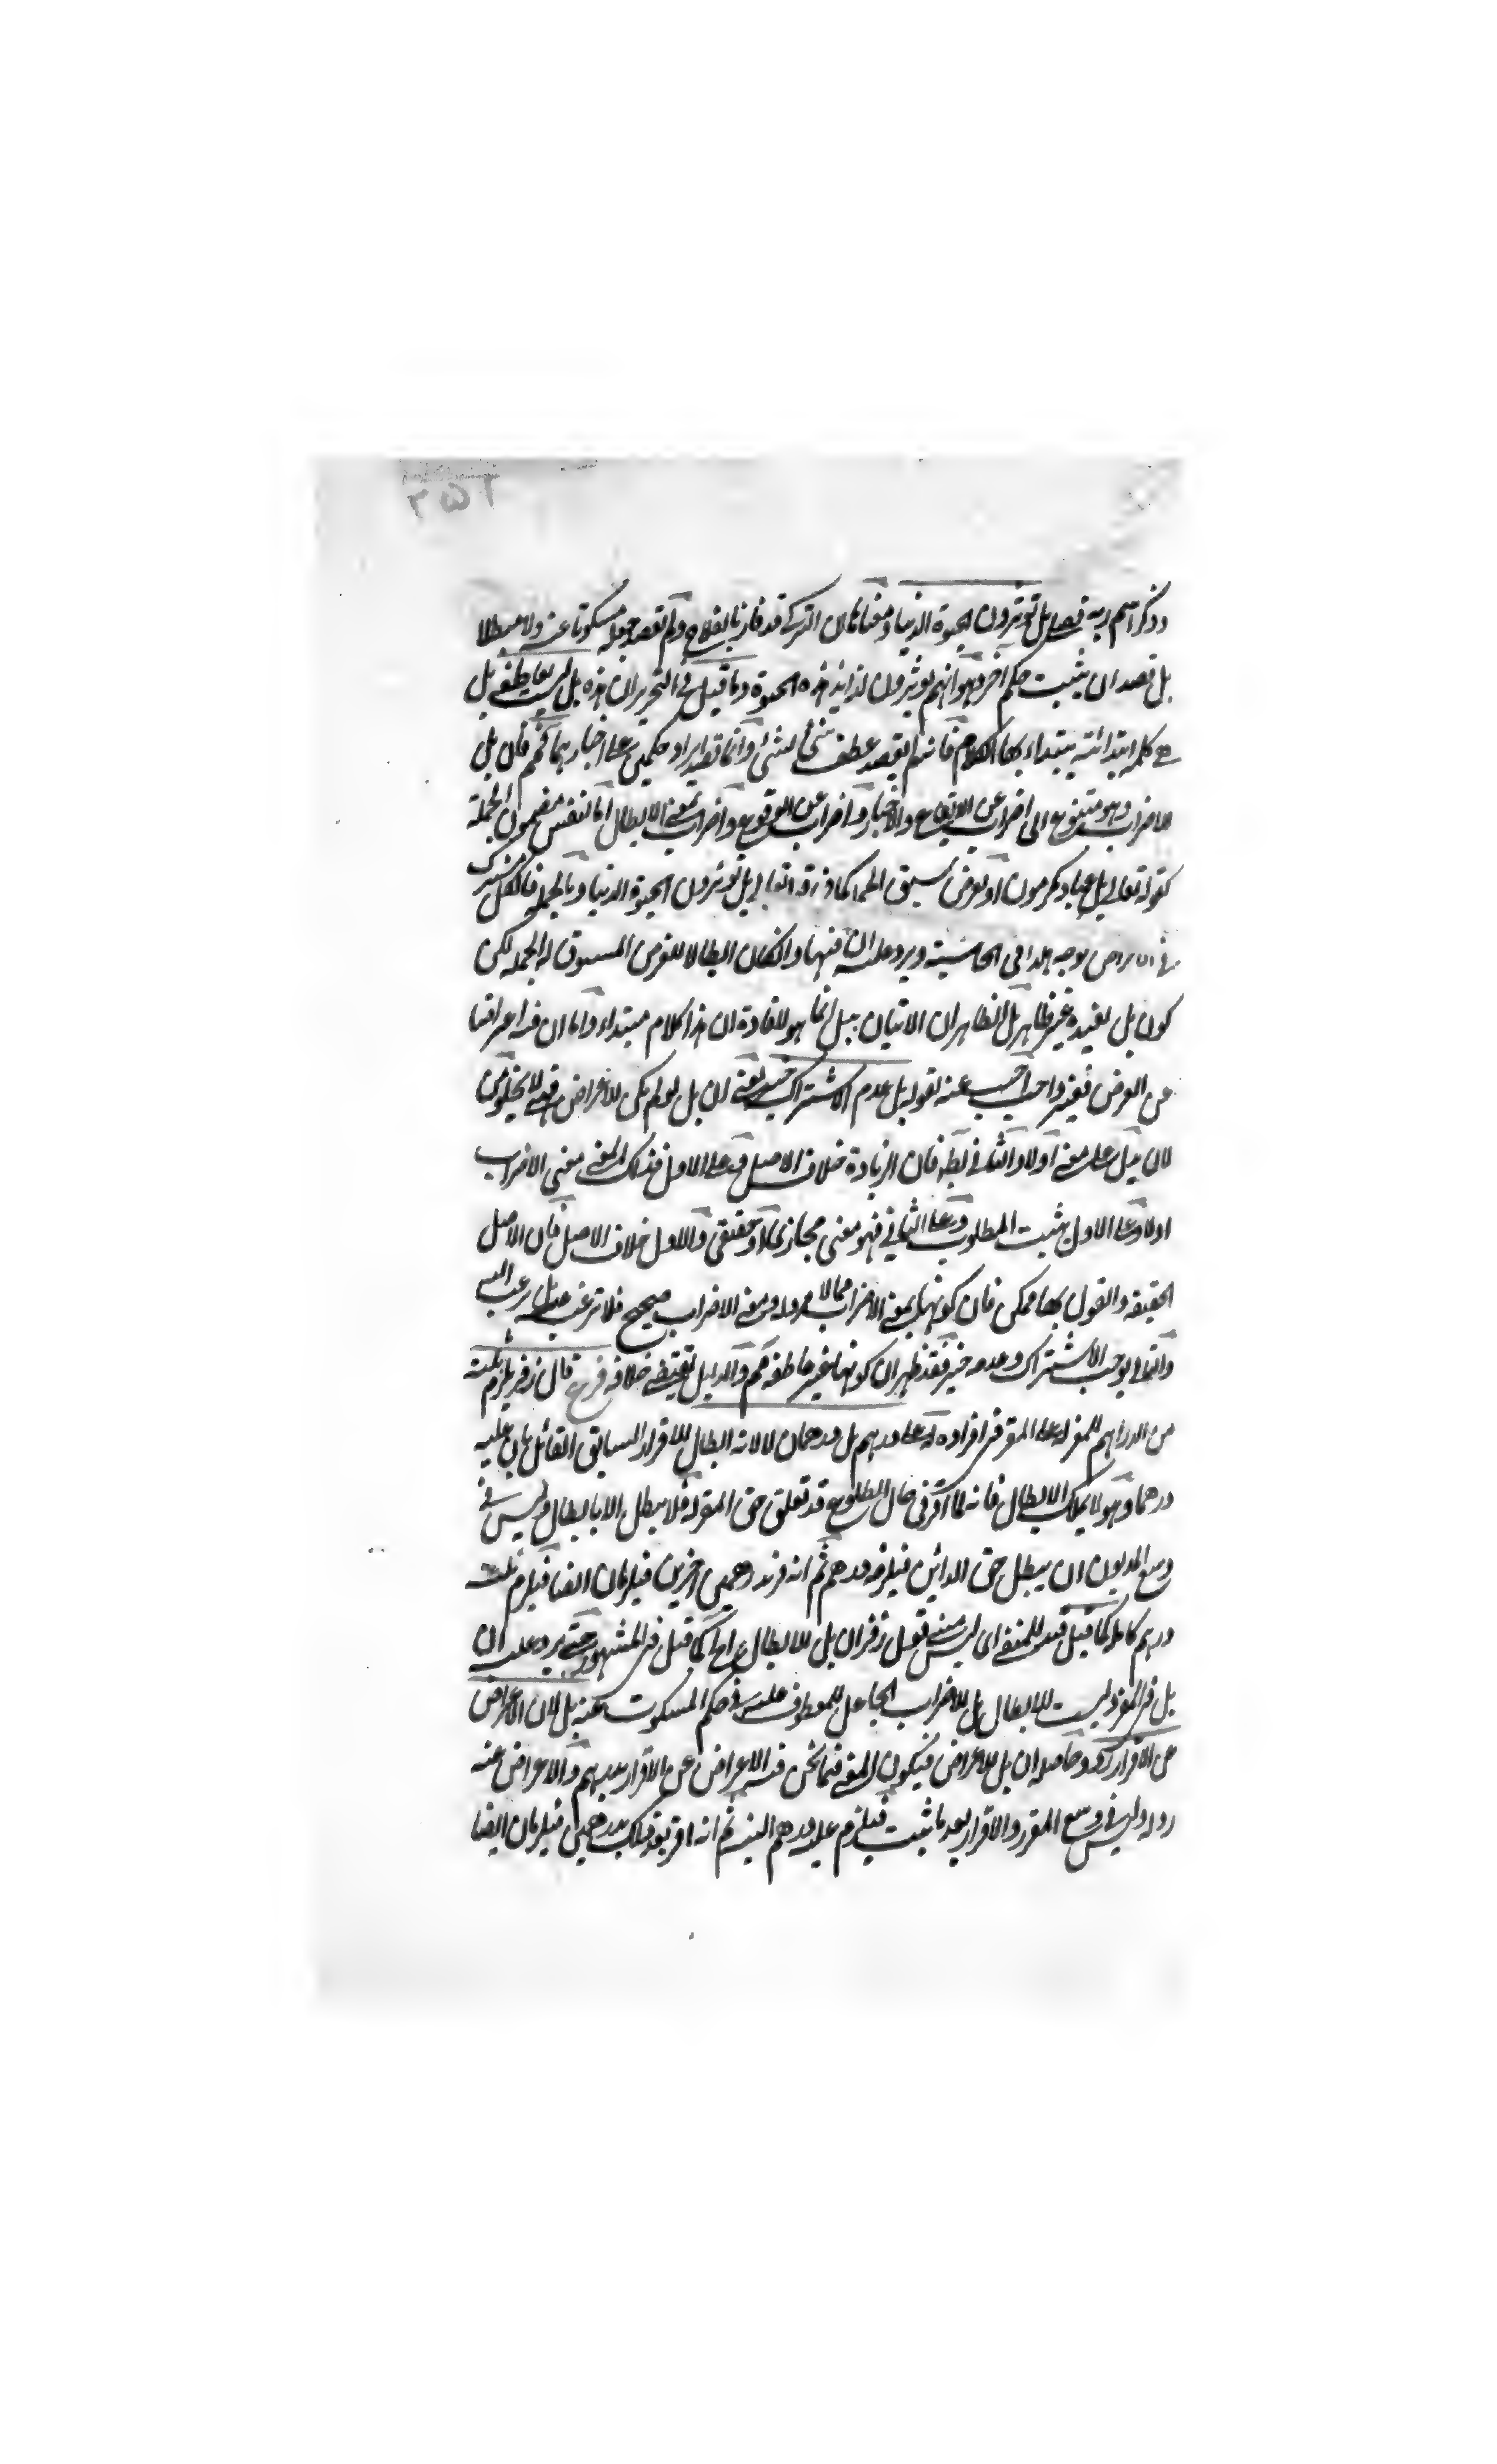 ٢٥٢
وذكر اسم ربه فصلى بل تؤثرون الحيوة الدنيا ومعناه ان التزكى قد فاز بالفلاح ولم يقصد جعله مسكوتا عنه ولا مبطلا
بل قصد ان يثبت حكم آخر وهو انهم يوثرون لذايذ هذه الحيوة وما قيل فى التحرير ان هذه بل ليست بعاطفة بل
هى كلمة ابتدائية يبتداء بها الكلام فانه لم يقصد عطف شئ لشئ وانما قصد ايراد حكمين على اخبارهما فمم فان بل
للاضراب وهو متنوع الى اضراب عن الايقاع والاخبار واضراب عن الوقوع واضراب بمعنى الابطال اما لنفس مضمون الجملة
كقوله تعالى بل عباد مكرمون او لغرض سيق لها كما فى قوله تعالى بل تؤثرون الحيوة الدنيا وبالجملة فالكل مشترك
فى الاعراض بوجه هذا فى الحاشية ويرد عليه ان فيها وان كان ابطالا للغرض المسوق له الجملة لكن
كون بل يفيده غير ظاهر بل الظاهر ان الاتيان ببل انما هو لافادة ان هذا كلام مبتداء واما ان فيه اعراضا
عن الغرض فغير واجب اجيب عنه بقوله بل عدم الاشتراك خير يعنى ان بل لو لم يكن للاعراض فيه لا يخلو من
لان يدل على معنى اولا والثانى بط فان الزيادة خلاف الاصل وعلى الاول فذلك المعنى معنى الاضراب
اولا وعلى الاول يثبت المطلوب وعلى الثانى فهو معنى مجازى او حقيقى والاول خلاف الاصل فان الاصل
الحقيقة والقول بها ممكن فان كونها بمعنى الاضراب مما لا مرد له ومعنى الاضراب صحيح فلا ترغب عنه بل ترغب اليه
والثانى يوجب الاشتراك وعدمه خير فقد ظهر ان كونها غير عاطفة مم والدليل يقتضى خلافه فرع قال زفر يلزم ثلثة
من الدراهم للمقر له على المقر فى اقراره له على درهم بل درهمان لا لانه ابطال للاقرار السابق القائل بان عليه
درهما وهو لا يملك الابطال فانه لما اقر فى حال الطوع قد تعلق حق المقر له فلا يبطل الا بابطال وليس فى
وسع المديون ان يبطل حق الداين فيلزمه درهم ثم انه فرد درهمين آخرين فيلزمان ايضا فيلزم ثلثة
دراهم كاملة كما قيل قيد للمنفى اى ليس مبنى قول زفر ان بل للابطال كما قيل فى المشهور حتى يرد عليه ان
بل فى المفرد ليست للابطال بل للاضراب الجاعل للمعطوف عليه فى حكم المسكوت عنه بل لان الاعراض
عن الاقرار رد وحاصله ان بل للاعراض فيكون المعنى فيما نحن فيه الاعراض عن الاقرار بدرهم والاعراض عنه
رد له وليس فى وسع المقر رد الاقرار بعد ما ثبت فيلزم عليه درهم البتة ثم انه اقر بعد ذلك بدرهمين فيلزمان ايضا